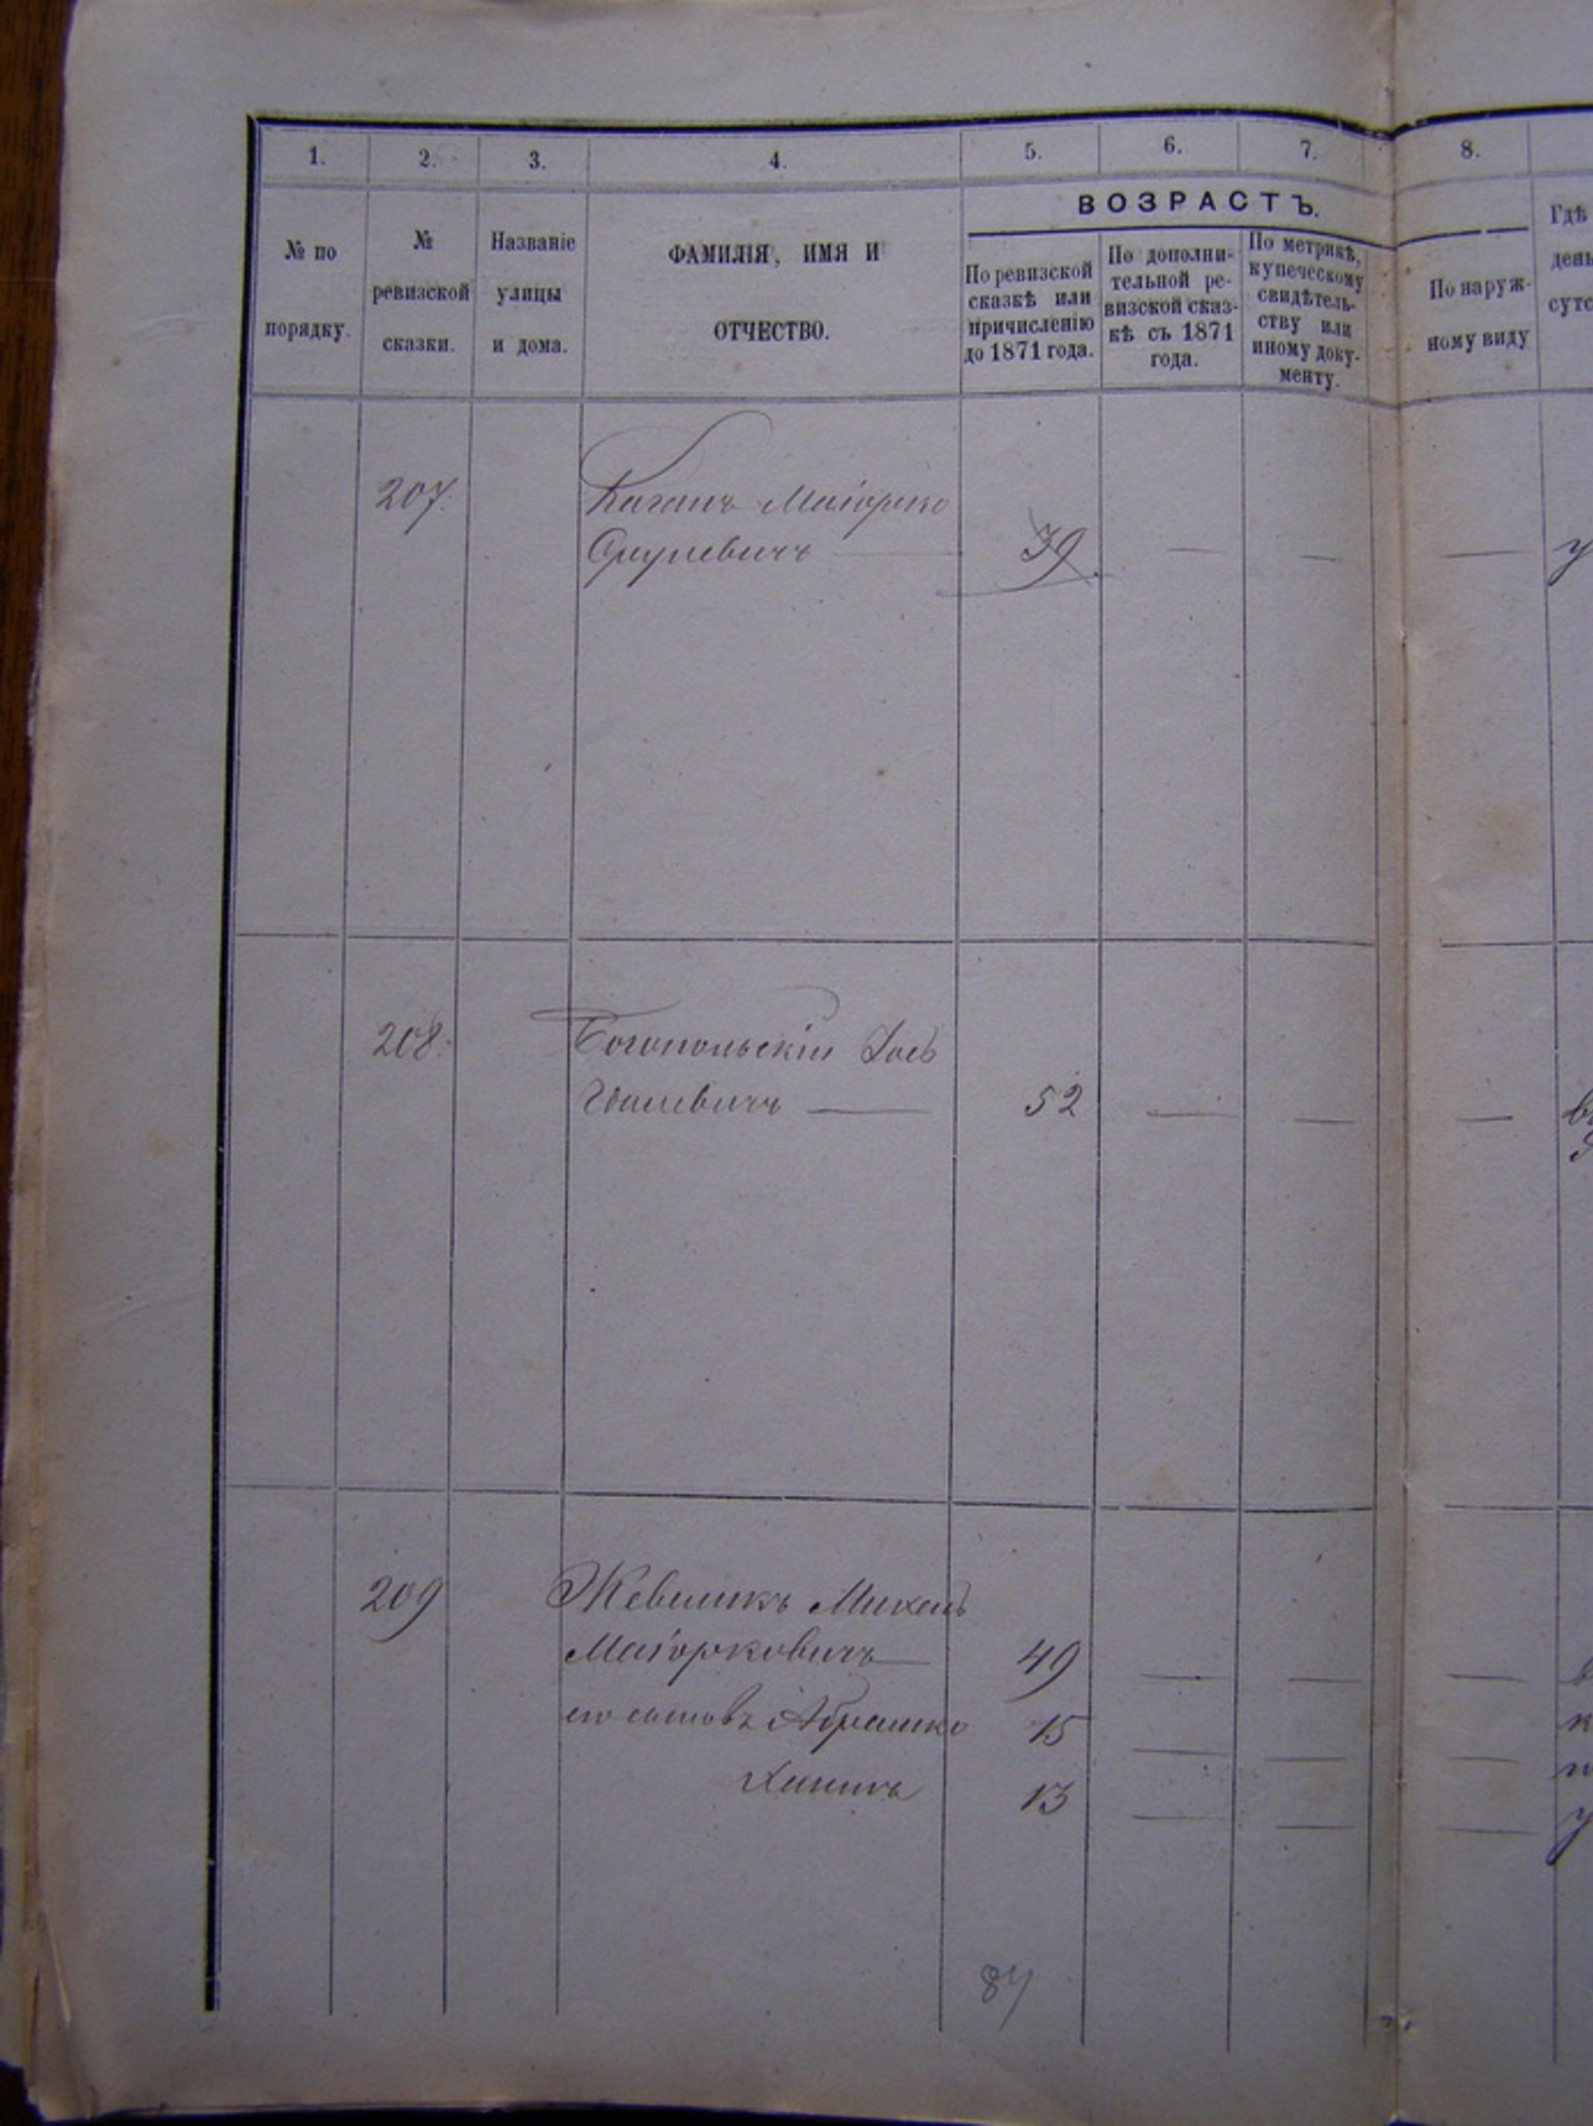 1. 2. 3. 4. 5. 6. 7. 8.
№ по порядку.
№ ревизской сказки.
Названіе улицы и дома.
ФАМИЛІЯ, ИМЯ И
ОТЧЕСТВО.
ВОЗРАСТЪ.
По ревизской
сказкѣ или
причисленію
до 1871 года.
По дополни-
тельной ре-
визской сказ-
кѣ съ 1871
года.
По метрикѣ,
купеческому
свидѣтель-
ству или
иному доку-
менту.
По наруж-
ному виду
Гдѣ
день
сутс
207. Каганъ Маіорко
Сруневичъ — 39 — — —
208. Богопольскій Іось
52 — — —
209 Жевеликъ Михель
Маіорковичъ — 49 — — —
его сыновъ Абрашко 15 — — —
13 — — —